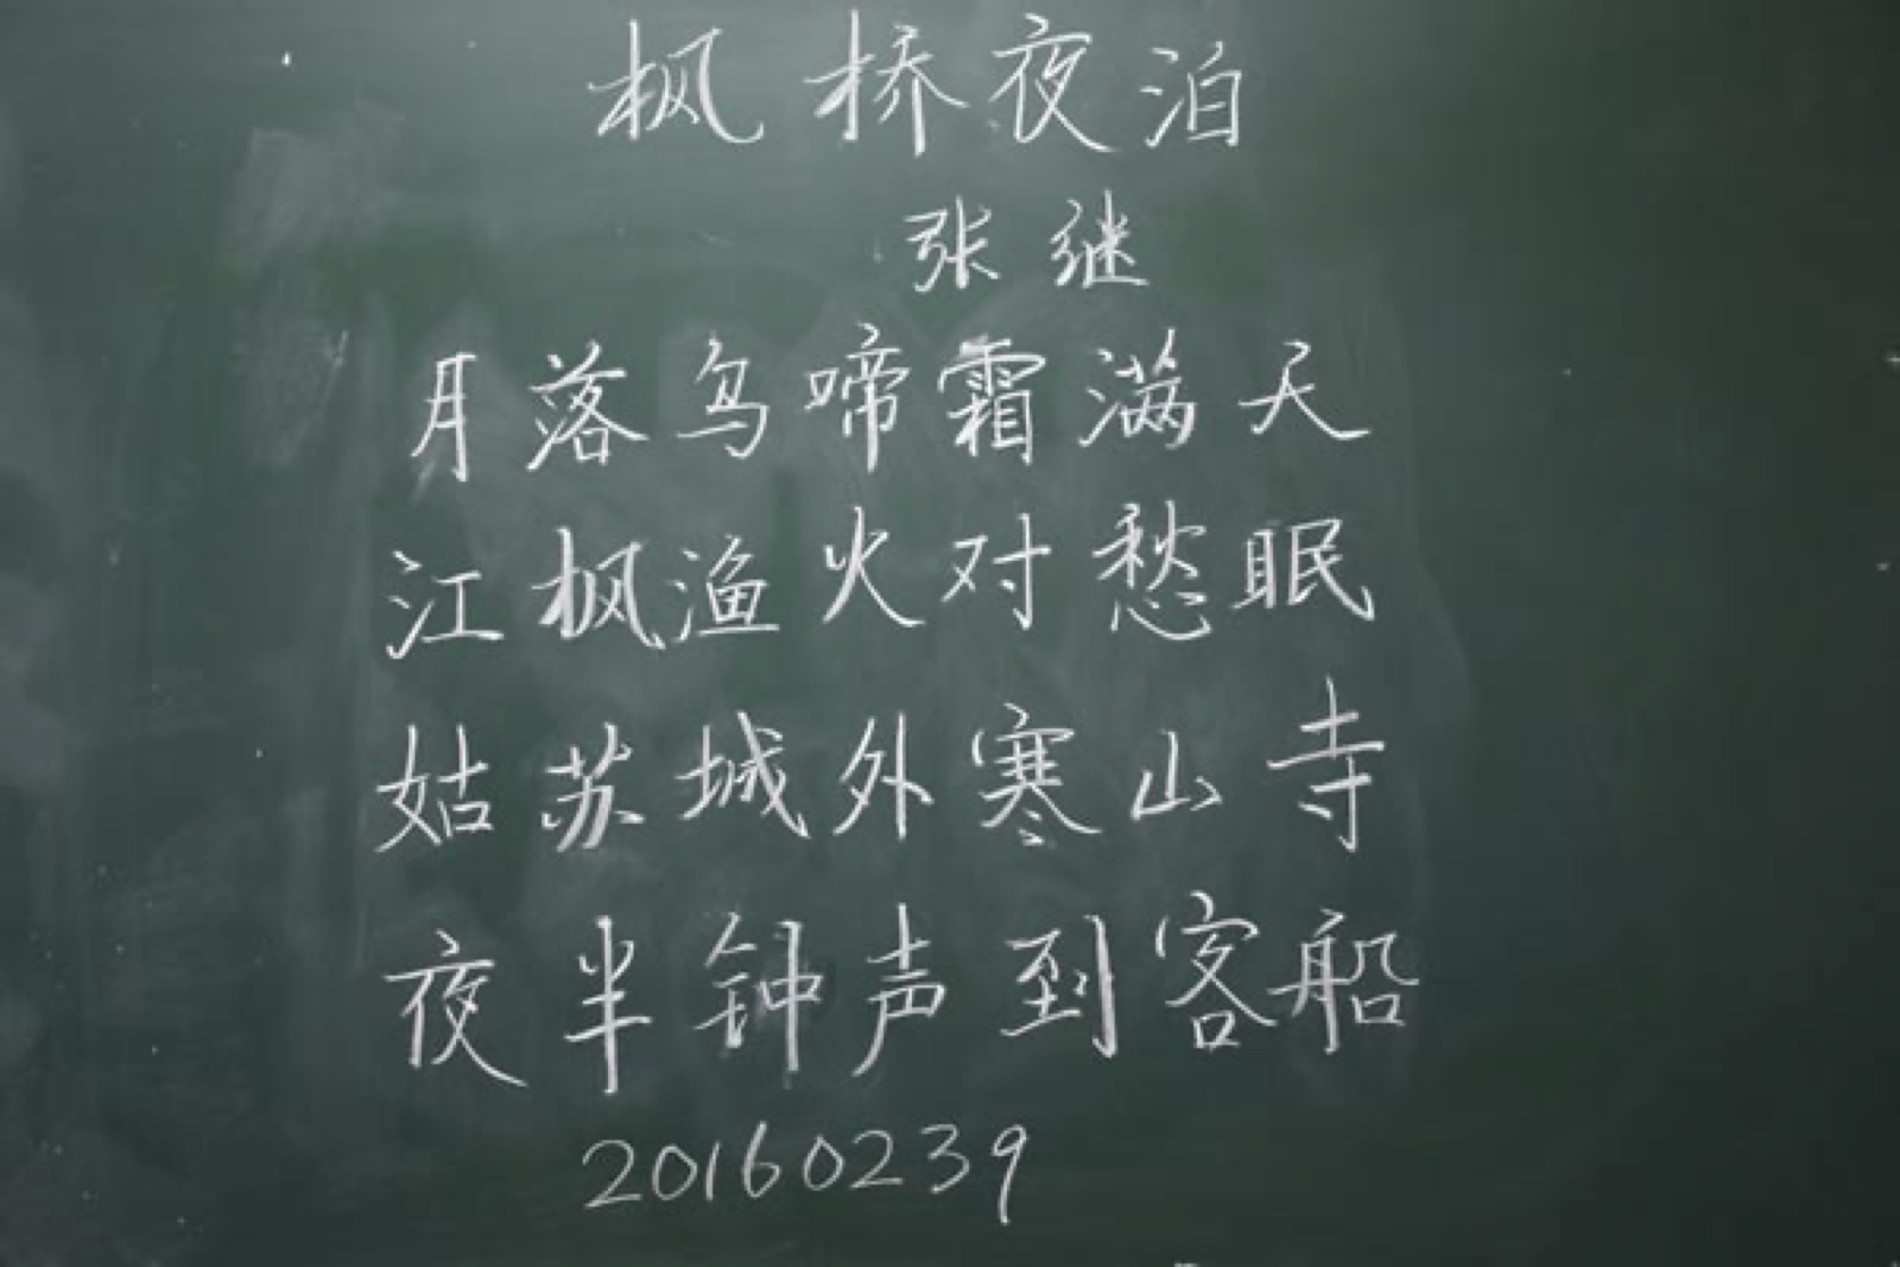 枫桥夜泊
张继
月落乌啼霜满天
江枫渔火对愁眠
姑苏城外寒山寺
夜半钟声到客船
20160239